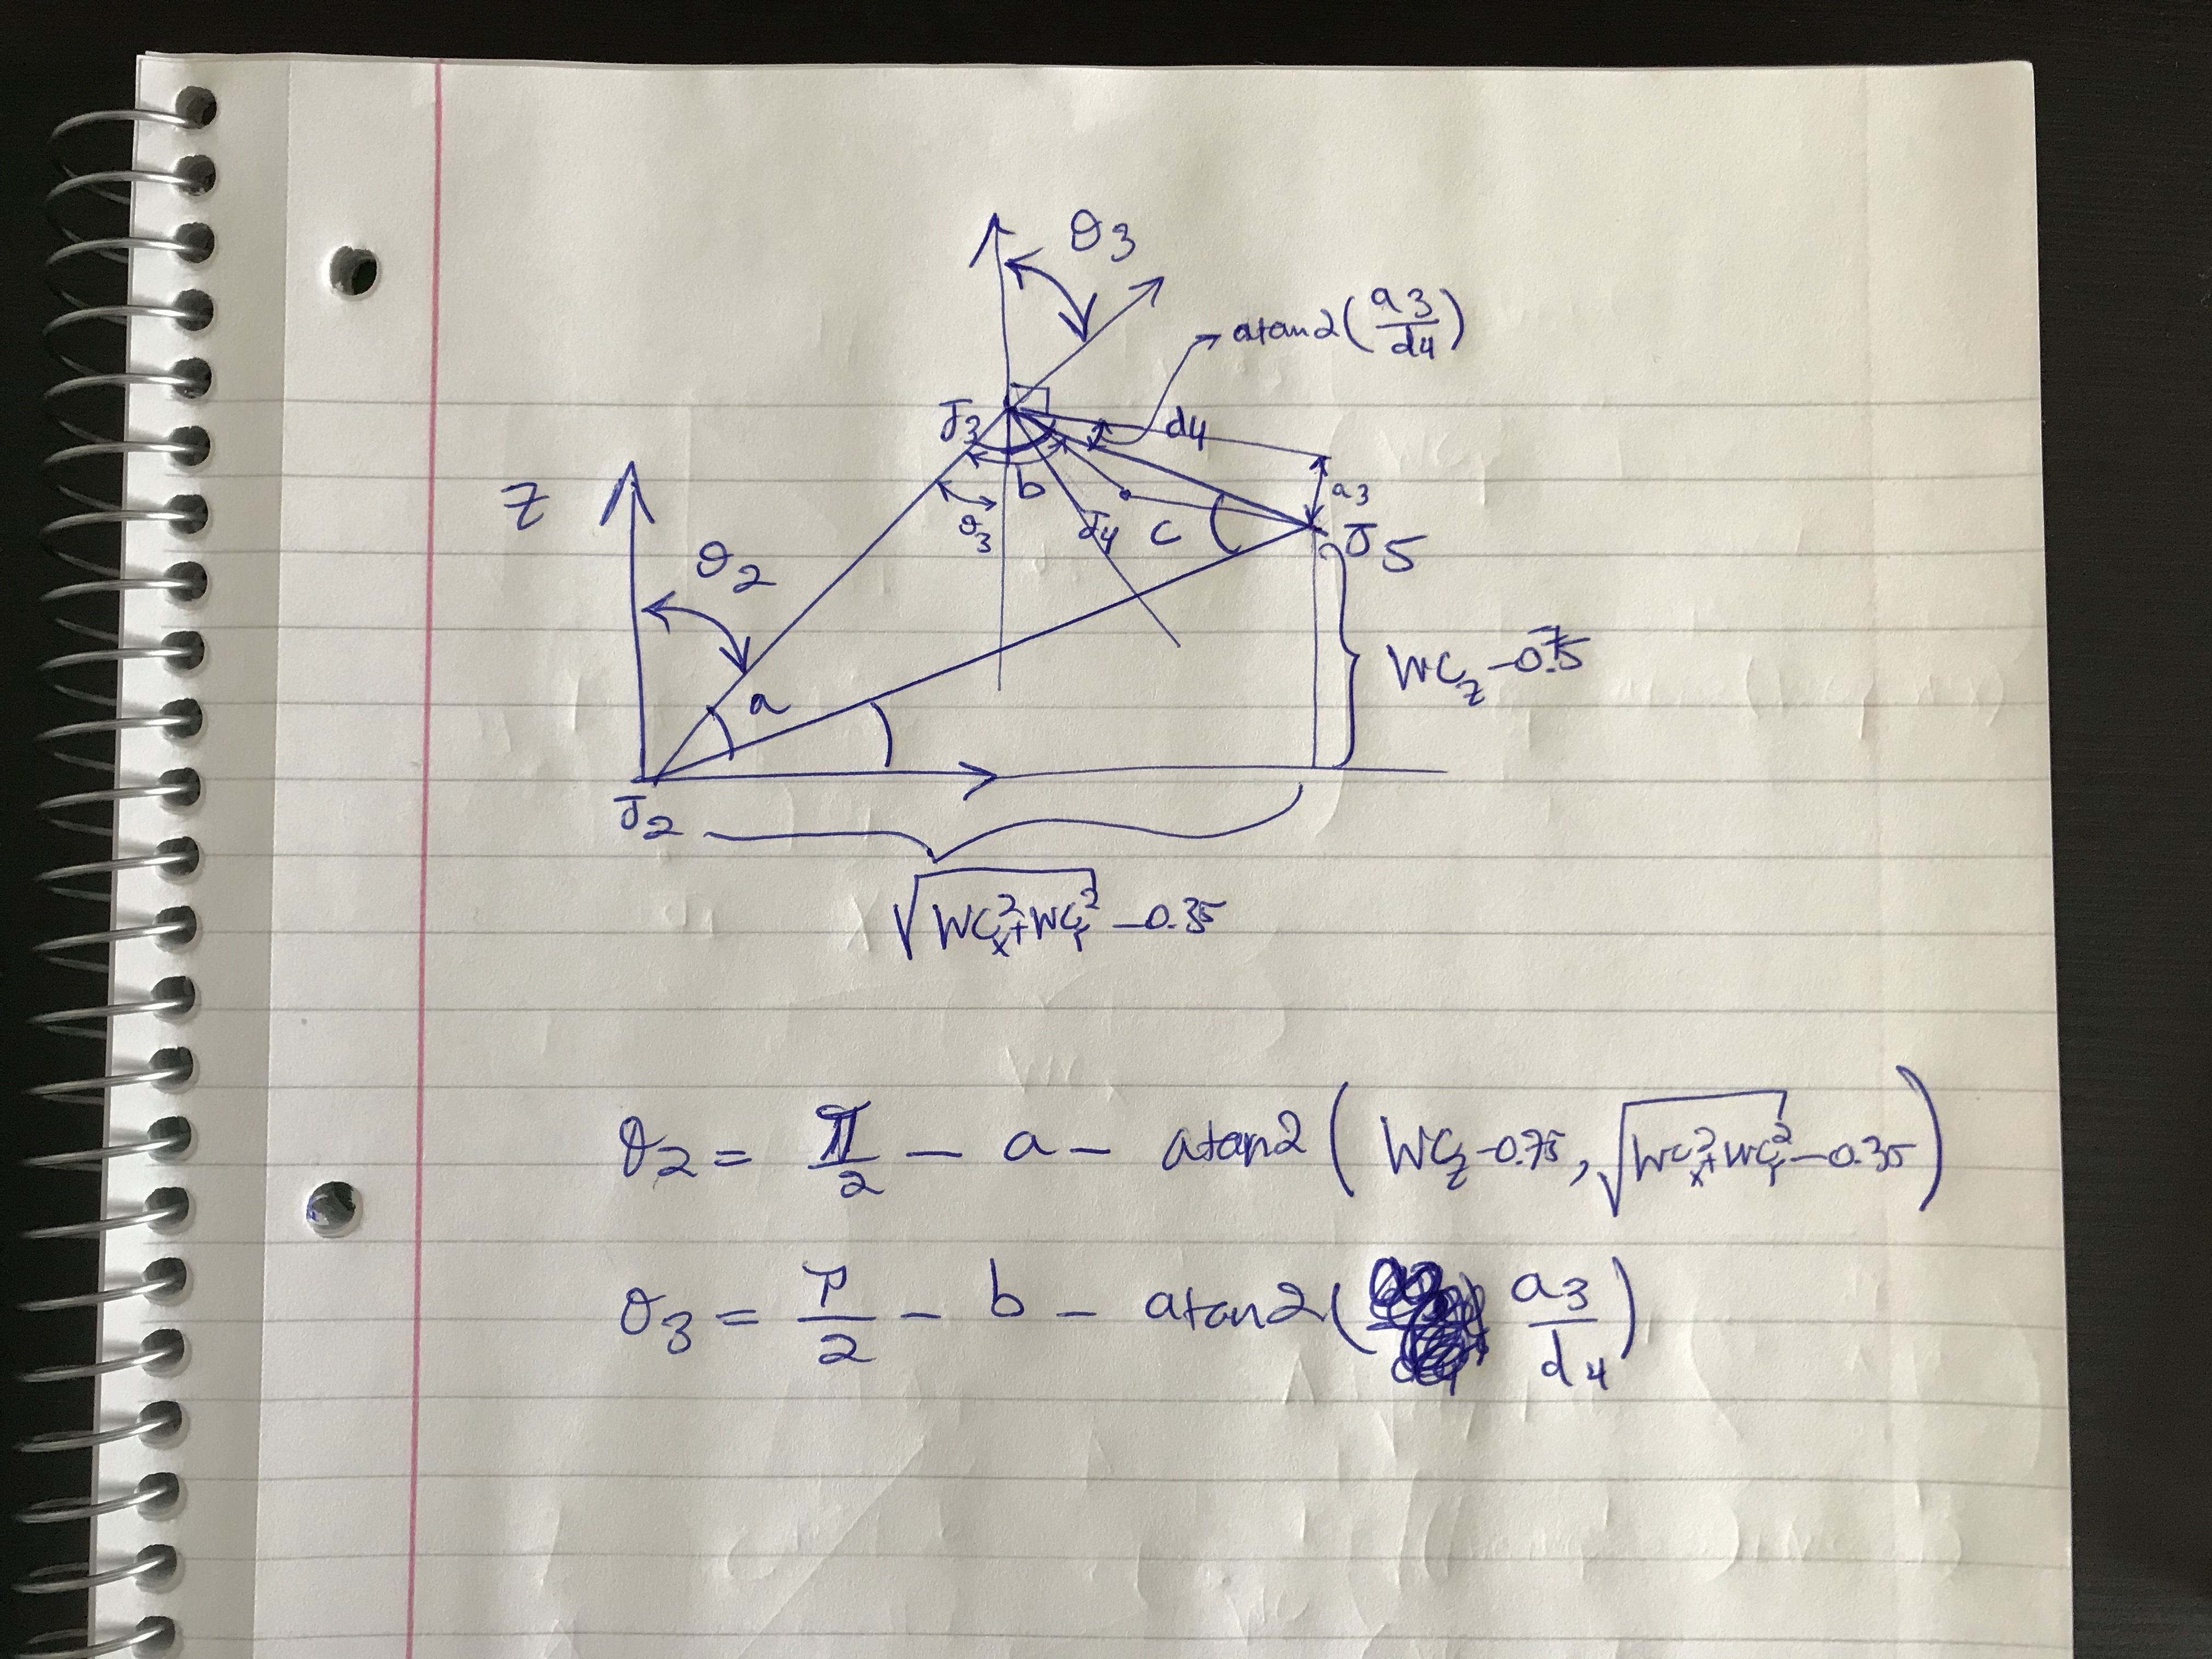 θ3
atan2(a3/d4)
J3
d4
b
a3
Z
θ3
J4
C
J5
θ2
WCz-0.75
a
J2
√WCx²+WCy² -0.35
θ2 = π/2 - a - atan2(WCz-0.75, √WCx²+WCy²-0.35)
θ3 = π/2 - b - atan2(a3/d4)